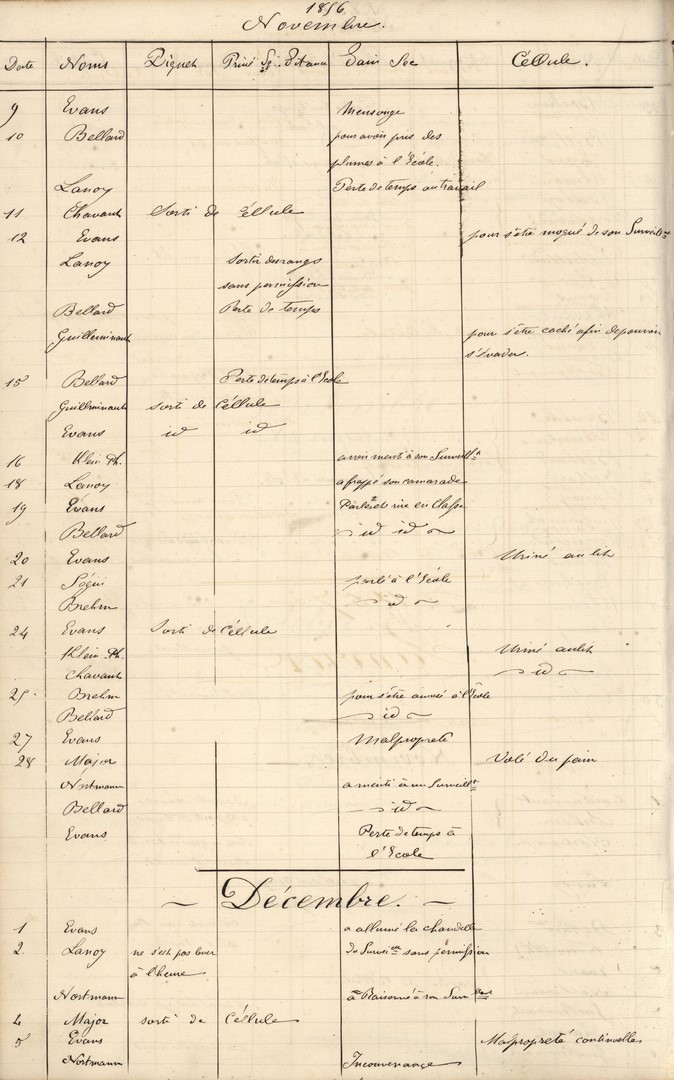 1856
Novembre.
Date Noms Piquet Privé Sp. Pitance Pain Sec Céllule.
9 Evans Mensonge
10 Bellard pour avoir pris des
plumes à l'École.
Lanoy Perte de temps au travail
11 Chavant Sorti de Céllule
12 Evans pour s'être moqué de son Surveillnt
Lanoy Sortir des rangs
sans permission
Bellard Perte de temps
Guilleminant pour s'être caché afin de pouvoir
s'évader.
15 Bellard Perte de temps à l'École
Guilleminant sorti de Céllule
Evans id id
16 Klein Ph. avoir menti à son Surveillt
18 Lanoy a frappé son camarade
19 Evans Parler et rire en Classe
Bellard id id
20 Evans Uriné au lit
21 Ségui parlé à l'École
Brehm id
24 Evans Sorti de Céllule
Klein Ph. Uriné au lit
Chavant id
25 Brehm pour s'être amusé à l'École
Bellard id
27 Evans Malpropreté
28 Major Volé du pain
Nortmann a menti à un Surveillt
Bellard id
Evans Perte de temps à
l'École
Décembre.
1 Evans a allumé la chandelle
2 Lanoy ne s'est pas lever du Surveillnt sans permission
à l'heure
Nortmann a Raisonné à son Surveillant
4 Major sorti de Céllule
5 Evans Malpropreté continuelles
Nortmann Inconvenance